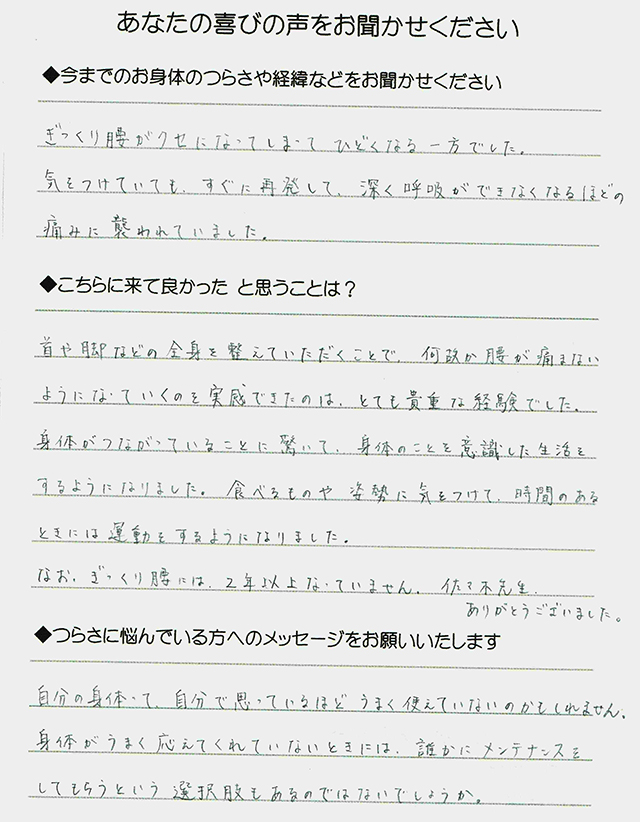 あなたの喜びの声をお聞かせください
◆今までのお身体のつらさや経緯などをお聞かせください
ぎっくり腰がクセになってしまって ひどくなる一方でした。
気をつけていても、すぐに再発して、深く呼吸ができなくなるほどの
痛みに襲われていました。
◆こちらに来て良かった と思うことは？
首や脚などの全身を整えていただくことで、何故か腰が痛まない
ようになっていくのを実感できたのは、とても貴重な経験でした。
身体がつながっていることに驚いて、身体のことを意識した生活を
するようになりました。食べるものや姿勢に気をつけて、時間のある
ときには運動をするようになりました。
なお、ぎっくり腰には、2年以上なっていません。佐々木先生、
ありがとうございました。
◆つらさに悩んでいる方へのメッセージをお願いいたします
自分の身体って、自分で思っているほどうまく使えていないのかもしれません。
身体がうまく応えてくれていないときには、誰かにメンテナンスを
してもらうという選択肢もあるのではないでしょうか。